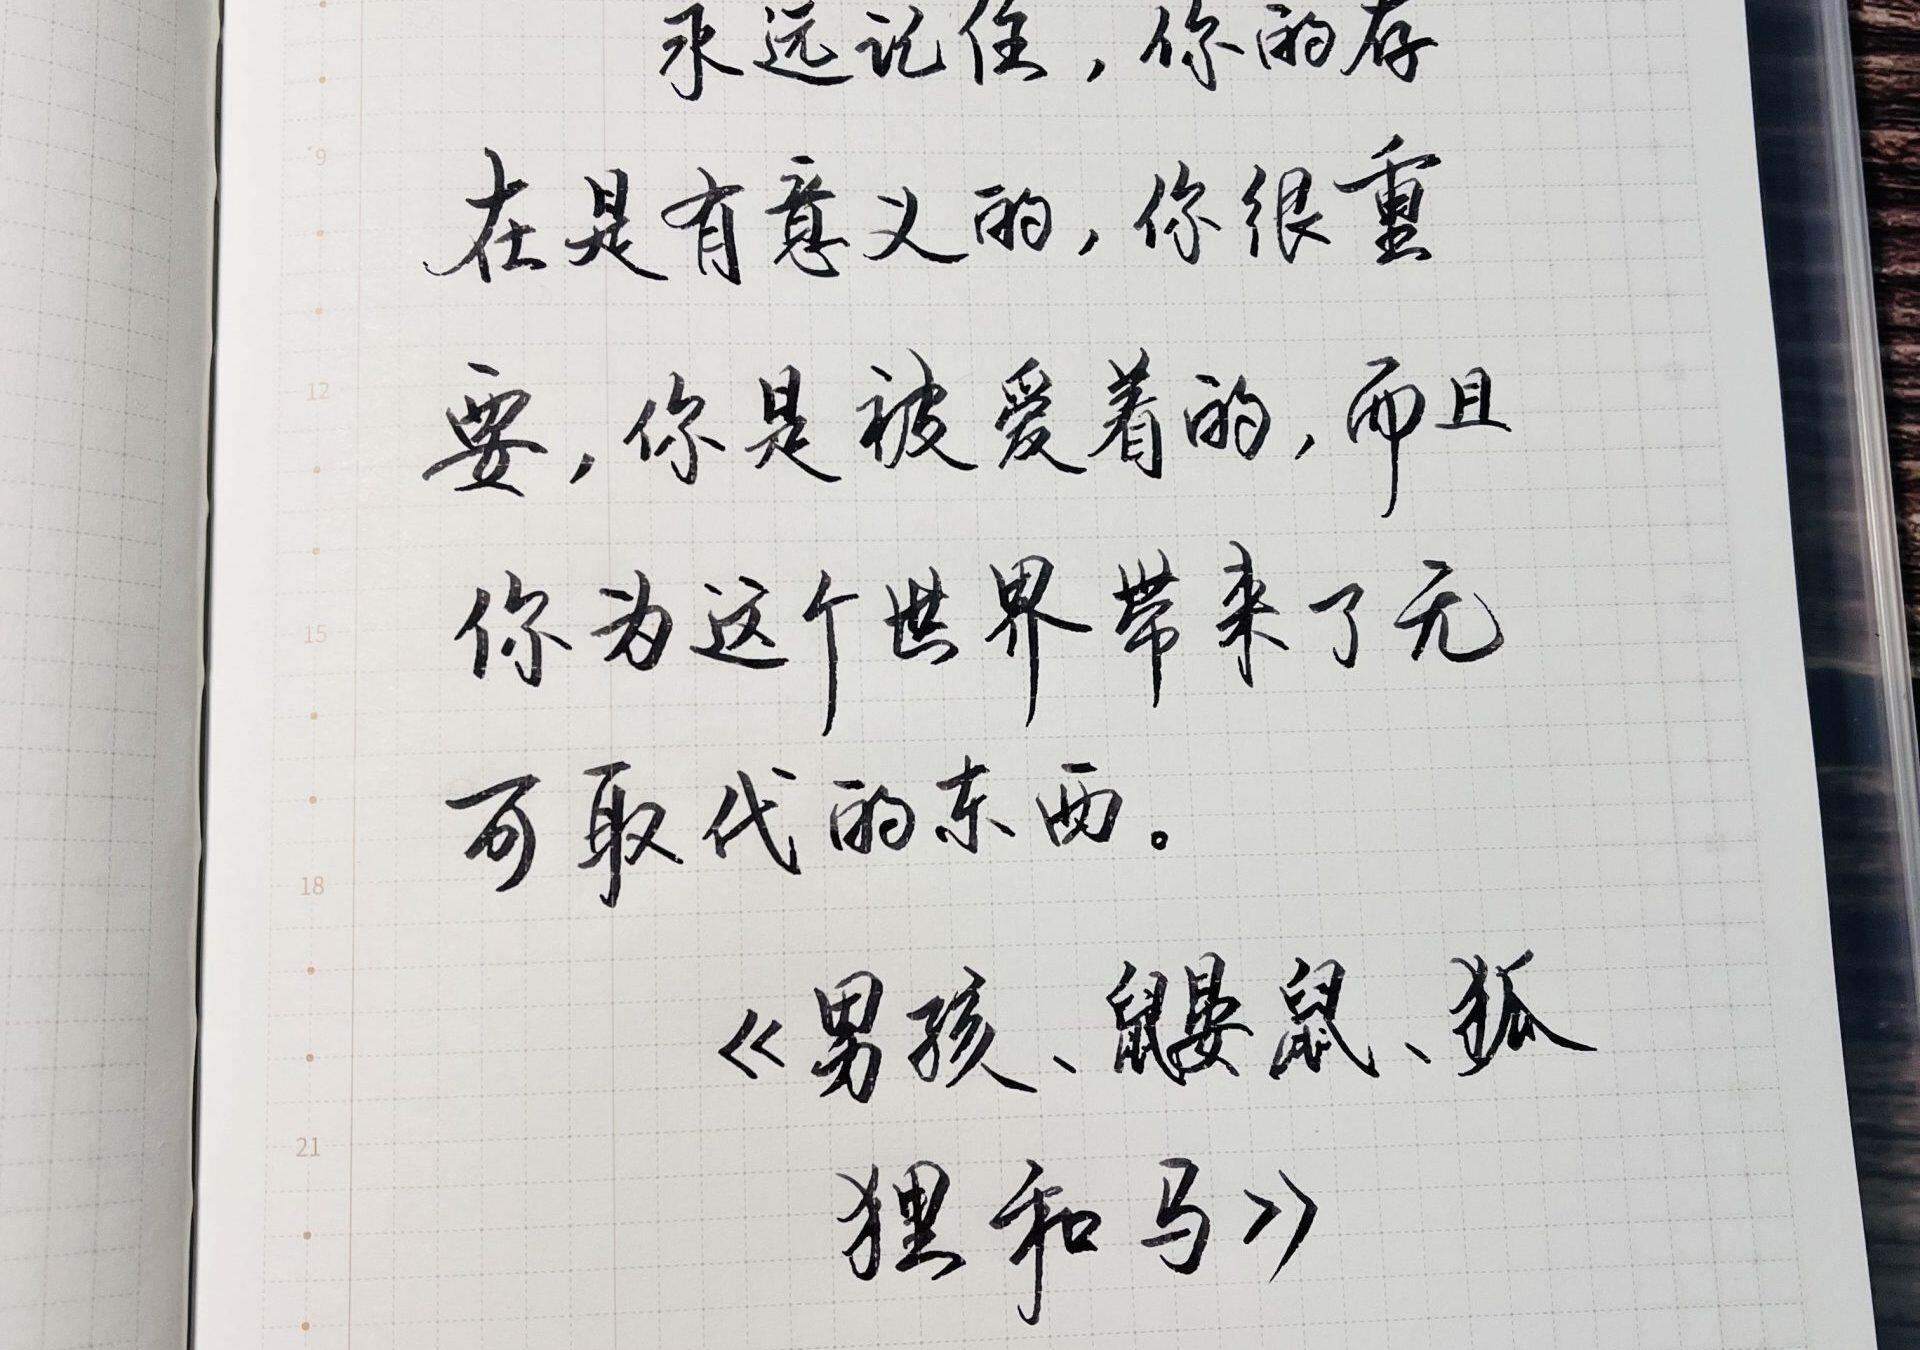 永远记住，你的存
9
在是有意义的，你很重
12
要，你是被爱着的，而且
15
你为这个世界带来了无
可取代的东西。
18
《男孩、鼹鼠、狐
21
狸和马》